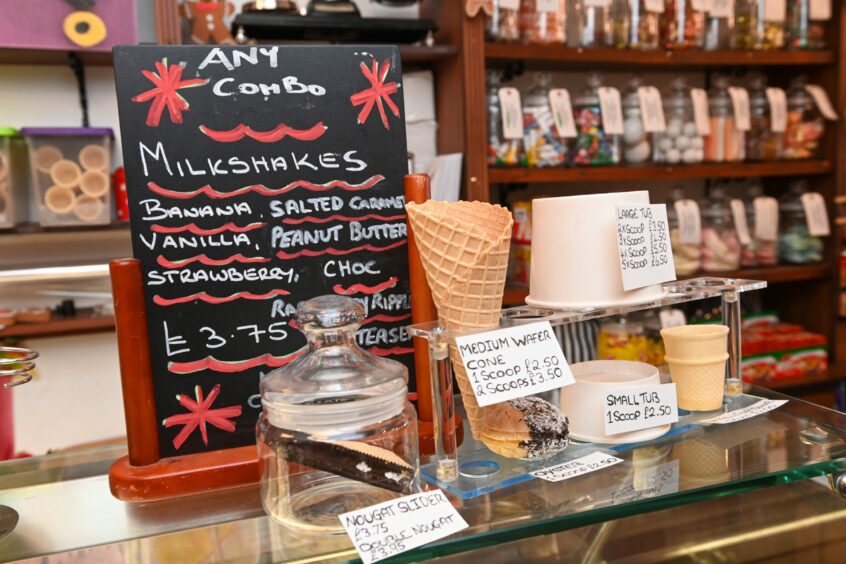 ANY
COMBO
MILKSHAKES
BANANA, SALTED CARAMEL
VANILLA, PEANUT BUTTER
STRAWBERRY, CHOC
RIPPLE
£3.75
LARGE TUB
2xSCOOP £3.50
3xSCOOP
4xSCOOP
5xSCOOP
MEDIUM WAFER
CONE
1SCOOP £2.50
2SCOOPS £3.50
SMALL TUB
1SCOOP £2.50
OYSTER
1SCOOP £2.50
NOUGAT SLIDER
£3.75
DOUBLE NOUGAT
£3.95